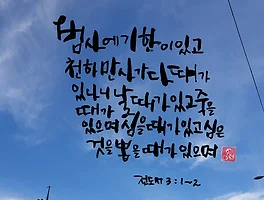 범사에 기한이 있고
천하 만사가 다 때가
있나니 날 때가 있고 죽을
때가 있으며 심을 때가 있고 심은
것을 뽑을 때가 있으며
전도서 3:1~2